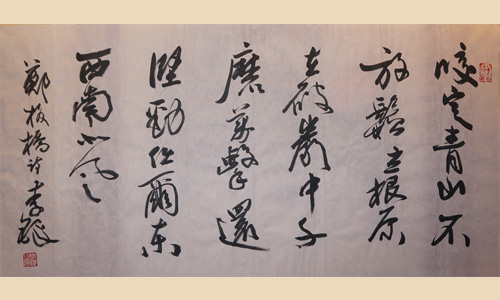 咬定青山不
放鬆立根原
在破巖中千
磨萬擊還
堅勁任爾東
西南北風
鄭板橋詩李